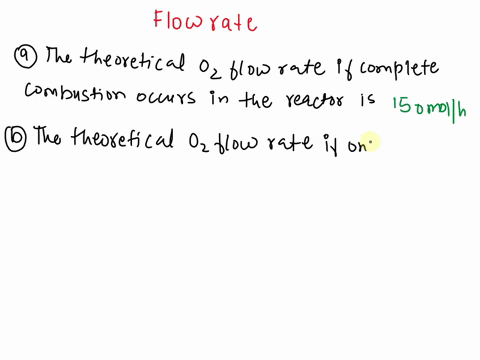 Flow rate
(a) The theoretical O2 flow rate if complete
combustion occurs in the reactor is 150mol/h
(b) The theoretical O2 flow rate if on